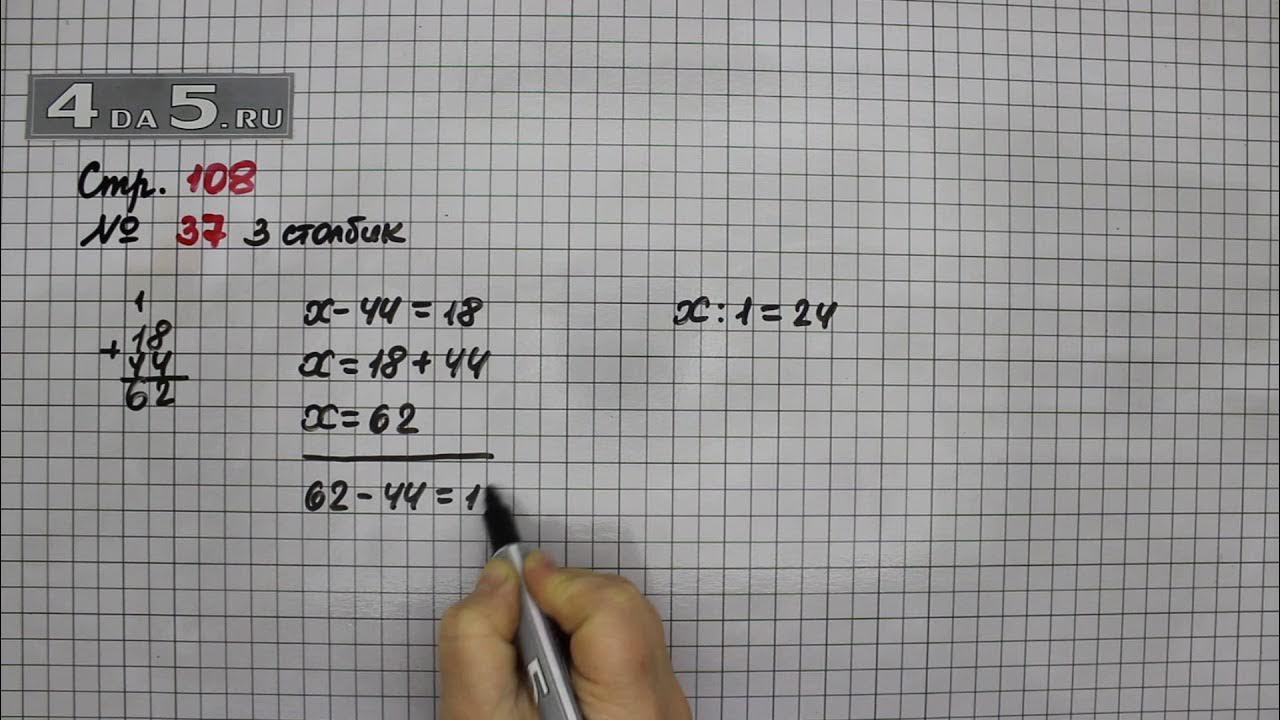 4DA5.RU
Стр. 108
№ 37 3 столбик
1
+18
44
62
x - 44 = 18
x = 18 + 44
x = 62
62 - 44 = 1
x : 1 = 24